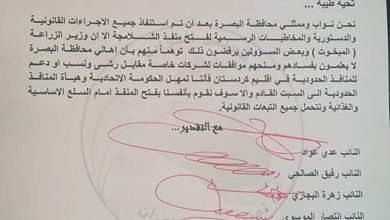 تحية طيبة ...
نحن نواب وممثلي محافظة البصرة بعد ان تم استنفاذ جميع الاجراءات القانونية
والدستورية والمخاطبات الرسمية لفتح منفذ الشلامجة الا ان وزير الزراعة
( المبخوت ) وبعض المسؤولين يرفضون ذلك توهماً منهم بأن إهالي محافظة البصرة
لا يعلمون بفسادهم ومنحهم موافقات لشركات خاصة مقابل رشى ونسب او دعم
للمنافذ الحدودية في اقليم كردستان فأننا نمهل الحكومة الاتحادية وهيأة المنافذ
الحدودية الى السبت القادم والا سوف نقوم بأنفسنا بفتح المنفذ امام السلع الاساسية
والغذائية ونتحمل جميع التبعات القانونية.
مع التقدير...
النائب عدي عواد
النائب رفيق الصالحي
النائب زهرة البجاري
النائب انتصار الموسوي